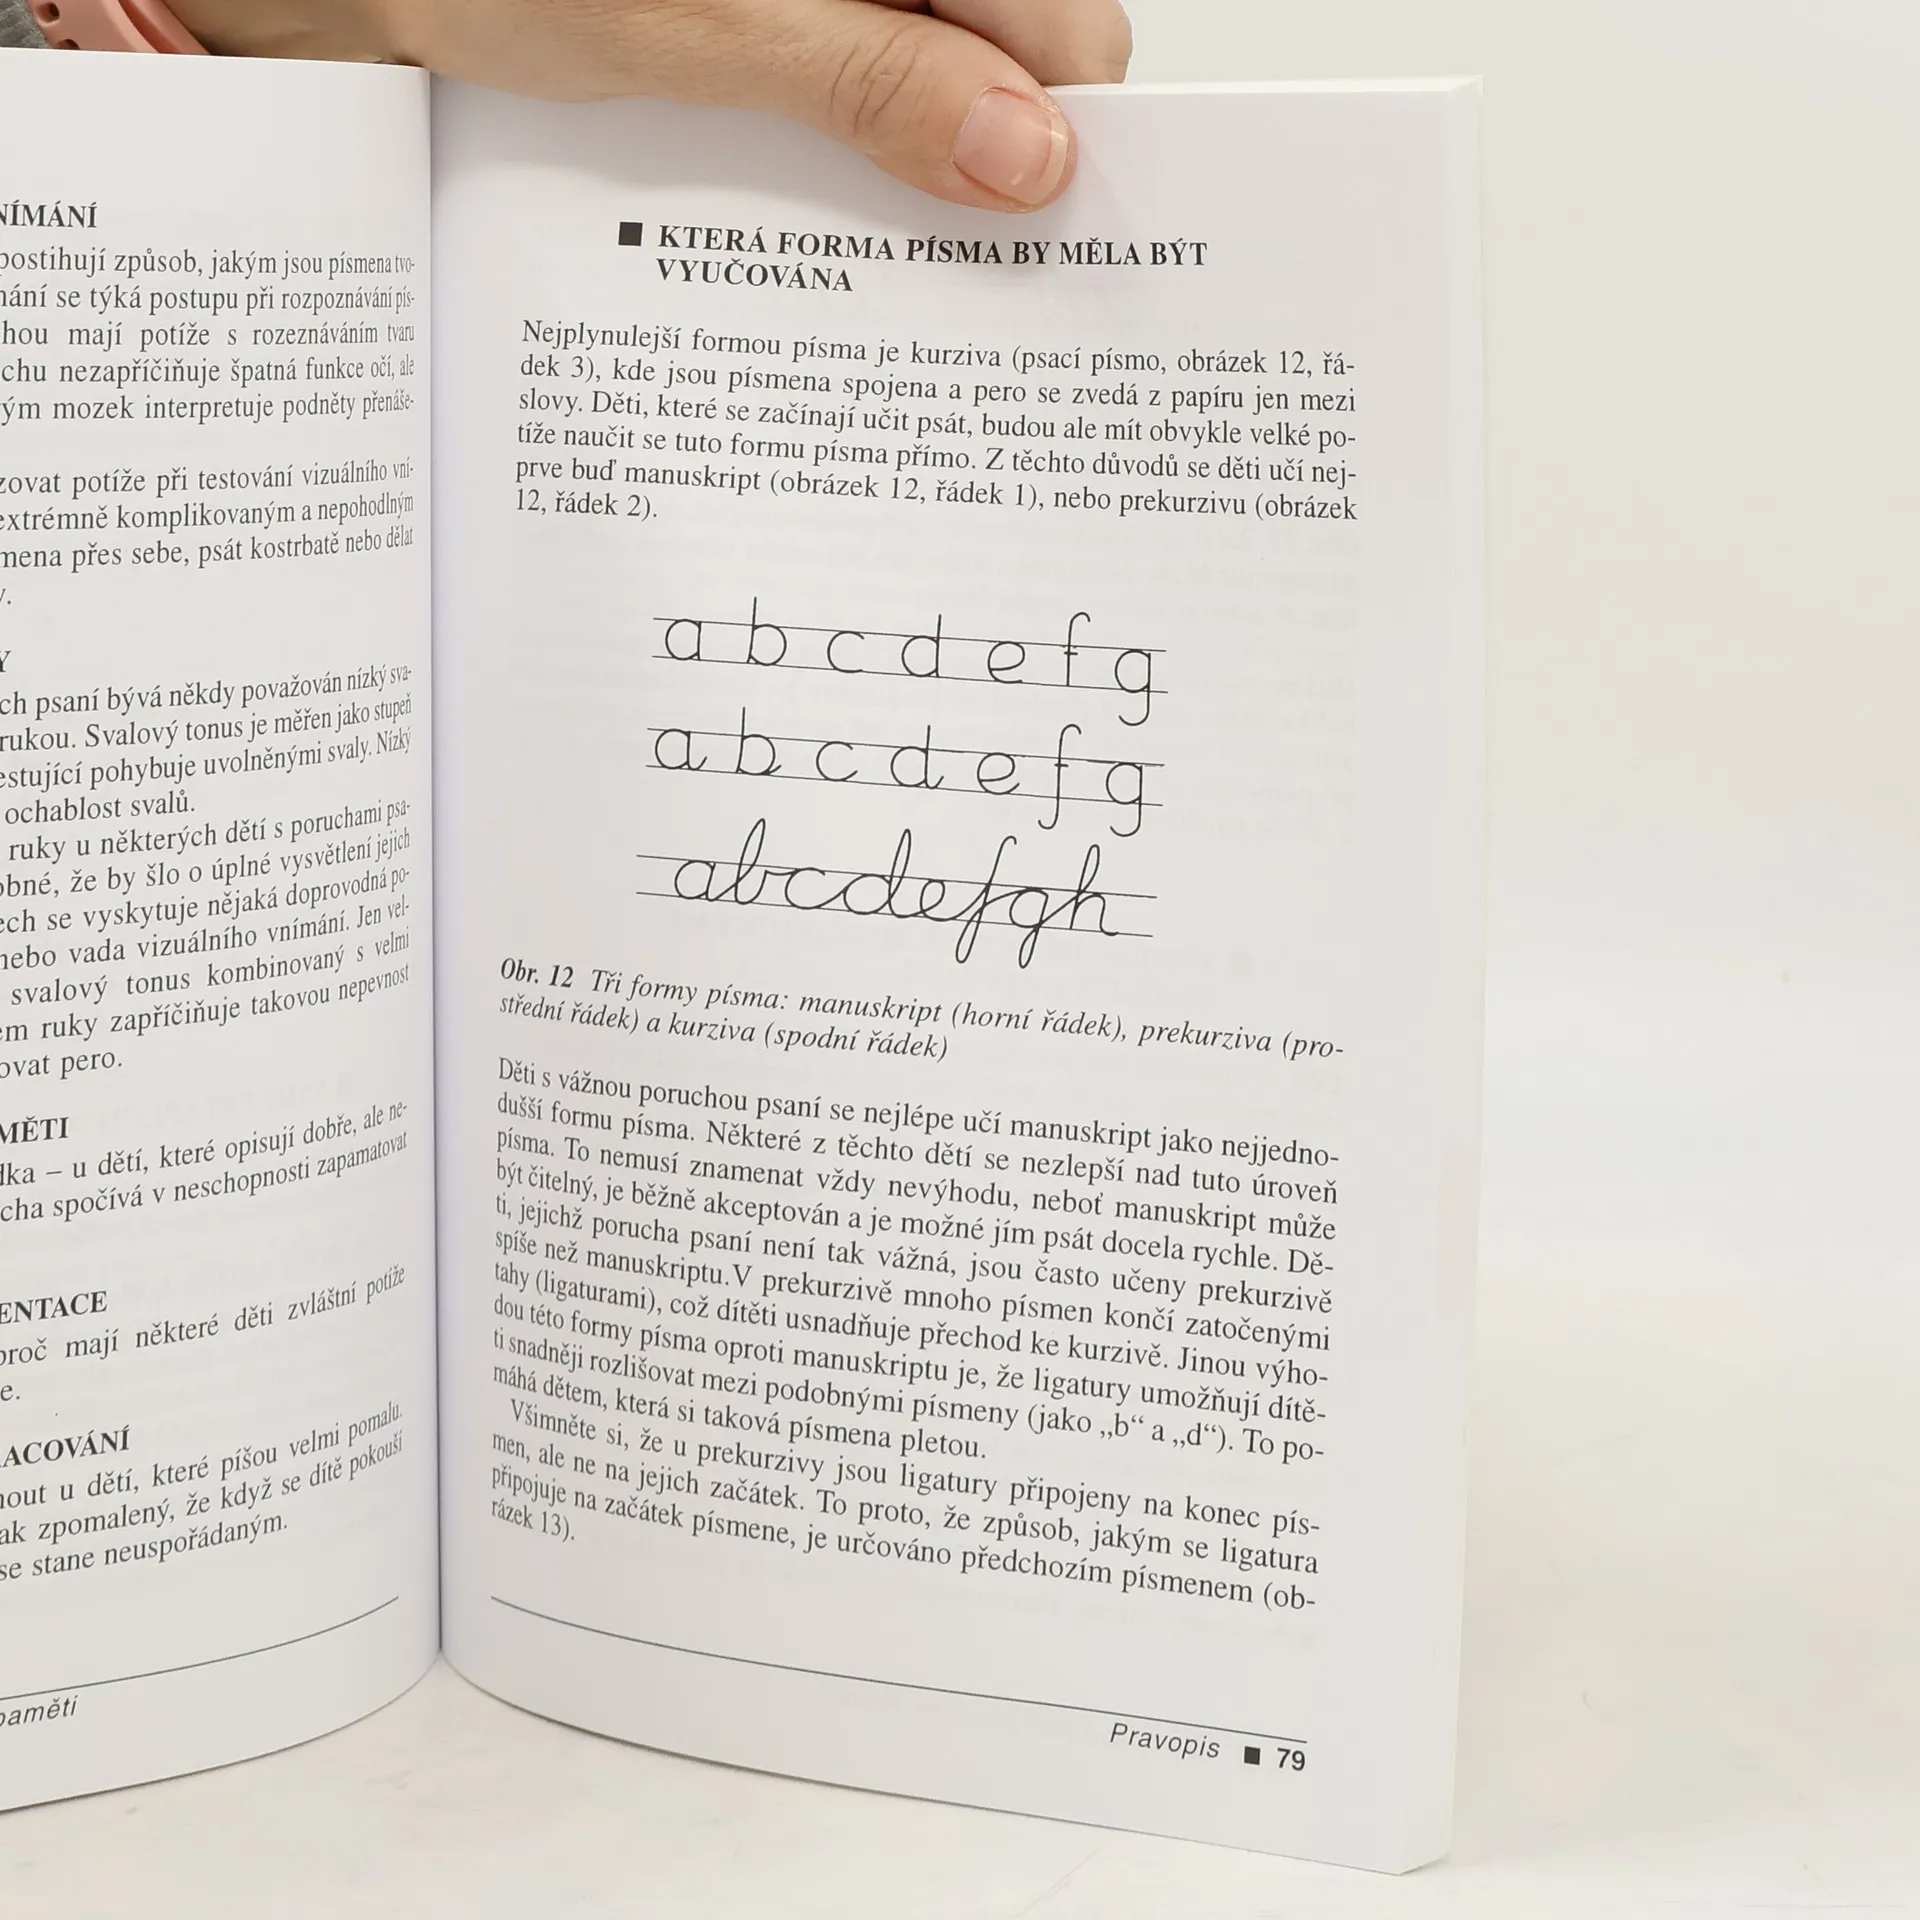 postihují způsob, jakým jsou písmena tvo-
se týká postupu při rozpoznávání pís-
mají potíže s rozeznáváním tvaru
nezapříčiňuje špatná funkce očí, ale
mozek interpretuje podněty přenáše-
potíže při testování vizuálního vní-
extrémně komplikovaným a nepohodlným
přes sebe, psát kostrbatě nebo dělat
psaní bývá někdy považován nízký sva-
rukou. Svalový tonus je měřen jako stupeň
pohybuje uvolněnými svaly. Nízký
ochablost svalů.
ruky u některých dětí s poruchami psa-
že by šlo o úplné vysvětlení jejich
se vyskytuje nějaká doprovodná po-
nebo vada vizuálního vnímání. Jen vel-
svalový tonus kombinovaný s velmi
ruky zapříčiňuje takovou nepevnost
pero.
– u dětí, které opisují dobře, ale ne-
spočívá v neschopnosti zapamatovat
proč mají některé děti zvláštní potíže
u dětí, které píšou velmi pomalu.
zpomalený, že když se dítě pokouší
se stane neuspořádaným.
paměti
■ KTERÁ FORMA PÍSMA BY MĚLA BÝT
VYUČOVÁNA
Nejplynulejší formou písma je kurziva (psací písmo, obrázek 12, řá-
dek 3), kde jsou písmena spojena a pero se zvedá z papíru jen mezi
slovy. Děti, které se začínají učit psát, budou ale mít obvykle velké po-
tíže naučit se tuto formu písma přímo. Z těchto důvodů se děti učí nej-
prve buď manuskript (obrázek 12, řádek 1), nebo prekurzivu (obrázek
12, řádek 2).
a b c d e f g
a b c d e f g
abcdefgh
Obr. 12 Tři formy písma: manuskript (horní řádek), prekurziva (pro-
střední řádek) a kurziva (spodní řádek)
Děti s vážnou poruchou psaní se nejlépe učí manuskript jako nejjedno-
dušší formu písma. Některé z těchto dětí se nezlepší nad tuto úroveň
písma. To nemusí znamenat vždy nevýhodu, neboť manuskript může
být čitelný, je běžně akceptován a je možné jím psát docela rychle. Dě-
ti, jejichž porucha psaní není tak vážná, jsou často učeny prekurzivě
spíše než manuskriptu.V prekurzivě mnoho písmen končí zatočenými
tahy (ligaturami), což dítěti usnadňuje přechod ke kurzivě. Jinou výho-
dou této formy písma oproti manuskriptu je, že ligatury umožňují dítě-
ti snadněji rozlišovat mezi podobnými písmeny (jako „b“ a „d“). To po-
máhá dětem, která si taková písmena pletou.
Všimněte si, že u prekurzivy jsou ligatury připojeny na konec pís-
men, ale ne na jejich začátek. To proto, že způsob, jakým se ligatura
připojuje na začátek písmene, je určováno předchozím písmenem (ob-
rázek 13).
Pravopis ■ 79